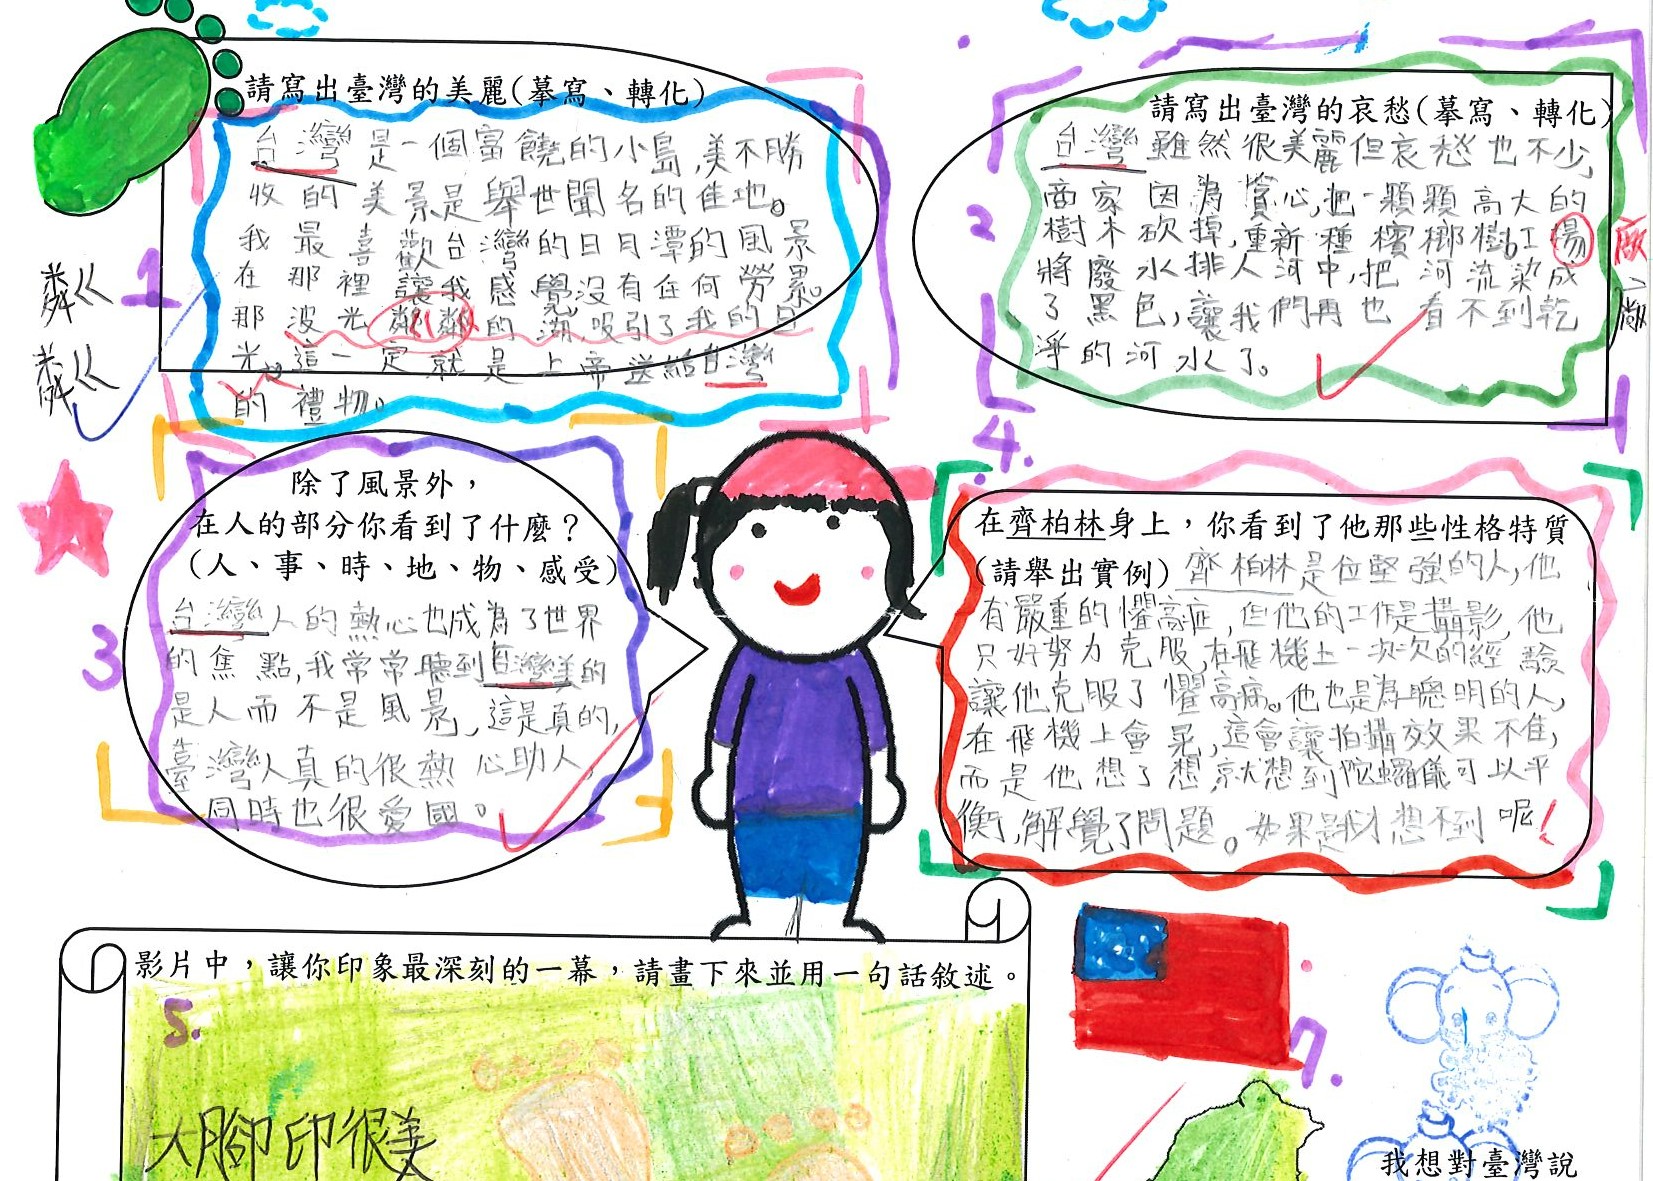 請寫出臺灣的美麗(摹寫、轉化)
台灣是一個富饒的小島,美不勝
收的美景是舉世聞名的佳地。
我最喜歡台灣的日月潭的風景
在那裡讓我感覺沒有任何勞累。
那波光粼粼的湖,吸引了我的目
光,這一定就是上帝送給台灣
的禮物。
1
請寫出臺灣的哀愁(摹寫、轉化)
台灣雖然很美麗但哀愁也不少,
商家因為貪心,把一顆顆高大的
樹木砍掉,重新種檳榔樹。工
將廢水排入河中,把河流染成
了黑色,讓我們再也看不到乾
淨的河水了。
2
廠
除了風景外,
在人的部分你看到了什麼?
(人、事、時、地、物、感受)
台灣人的熱心也成為了世界
的焦點,我常常聽到台灣美的
是人而不是風景,這是真的,
臺灣人真的很熱心助人,
同時也很愛國。
3
4.
在齊柏林身上,你看到了他那些性格特質
(請舉出實例)齊柏林是位堅強的人,他
有嚴重的懼高症,但他的工作是攝影,他
只好努力克服,在飛機上一次次的經驗
讓他克服了懼高症。他也是為聰明的人,
在飛機上會晃,這會讓拍攝效果不佳,
而是他想了想,就想到陀螺儀可以平
衡,解覺了問題。如果是我才想不到呢!
影片中,讓你印象最深刻的一幕,請畫下來並用一句話敘述。
5.
大腳印很美
7.
我想對臺灣說